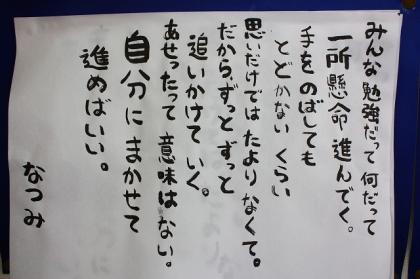 みんな勉強だって何だって
一所懸命進んでく。
手をのばしても
とどかないくらい
思いだけではたよりなくて。
だから、ずっとずっと
追いかけていく。
あせったって意味はない。
自分にまかせて
進めばいい。
なつみ